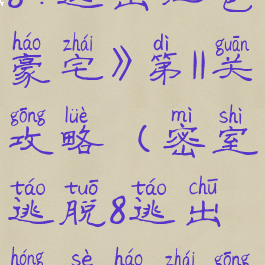 háo zhái dì guān
豪宅》第11关
gōng lüè mì shì
攻略(密室
táo tuō táo chū
逃脱8逃出
hóng sè háo zhái gōng